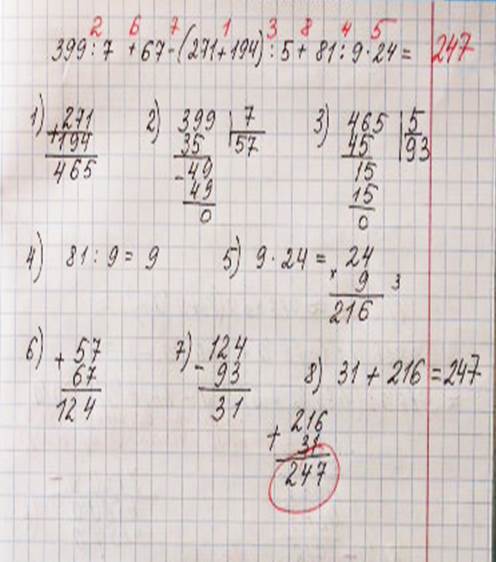 2 6 7 1 3 8 4 5
399 : 7 + 67 - (271 + 194) : 5 + 81 : 9 · 24 = 247
1) 271 2) 399 | 7 3) 465 | 5
+ 194 35 57 45 93
465 - 49 15
49 15
0 0
4) 81 : 9 = 9 5) 9 · 24 = 24
× 9 3
216
6) + 57 7) - 124 8) 31 + 216 = 247
67 93
124 31
+ 216
31
247